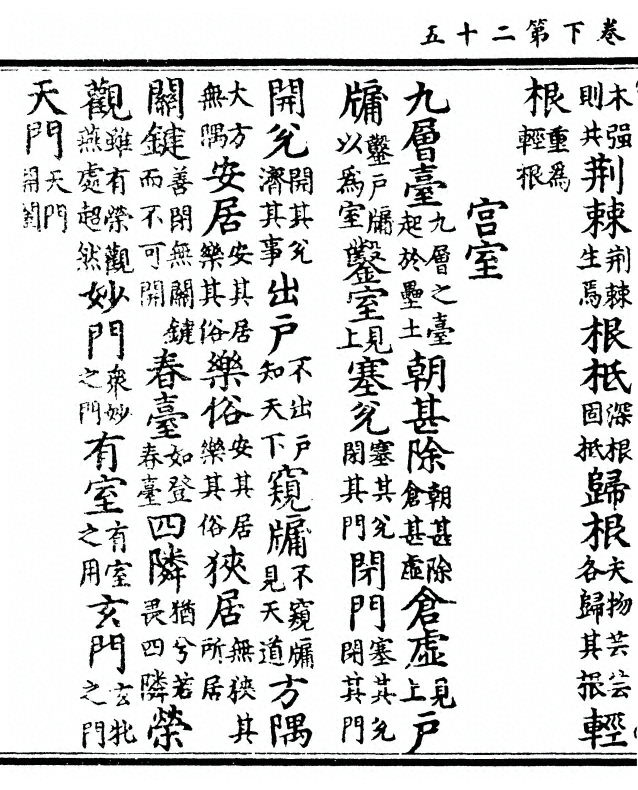 卷下第二十五
木强則共荆棘荆棘生焉根柢深根固柢歸根夫物芸芸各歸其根輕
根重爲輕根
宫室
九層臺九層之臺起於壘土朝甚除朝甚除倉甚虛倉虛見上戶
牖鑿戶牖以爲室鑿室見上塞兊塞其兊閉其門閉門塞其兊閉其門
開兊開其兊濟其事出戶不出戶知天下窺牖不窺牖見天道方隅
大方無隅安居安其居樂其俗樂俗安其居樂其俗狹居無狹其所居
關鍵善閉無關鍵而不可開春臺如登春臺四隣猶兮若畏四隣榮
觀雖有榮觀燕處超然妙門衆妙之門有室有室之用玄門玄牝之門
天門天門開闔